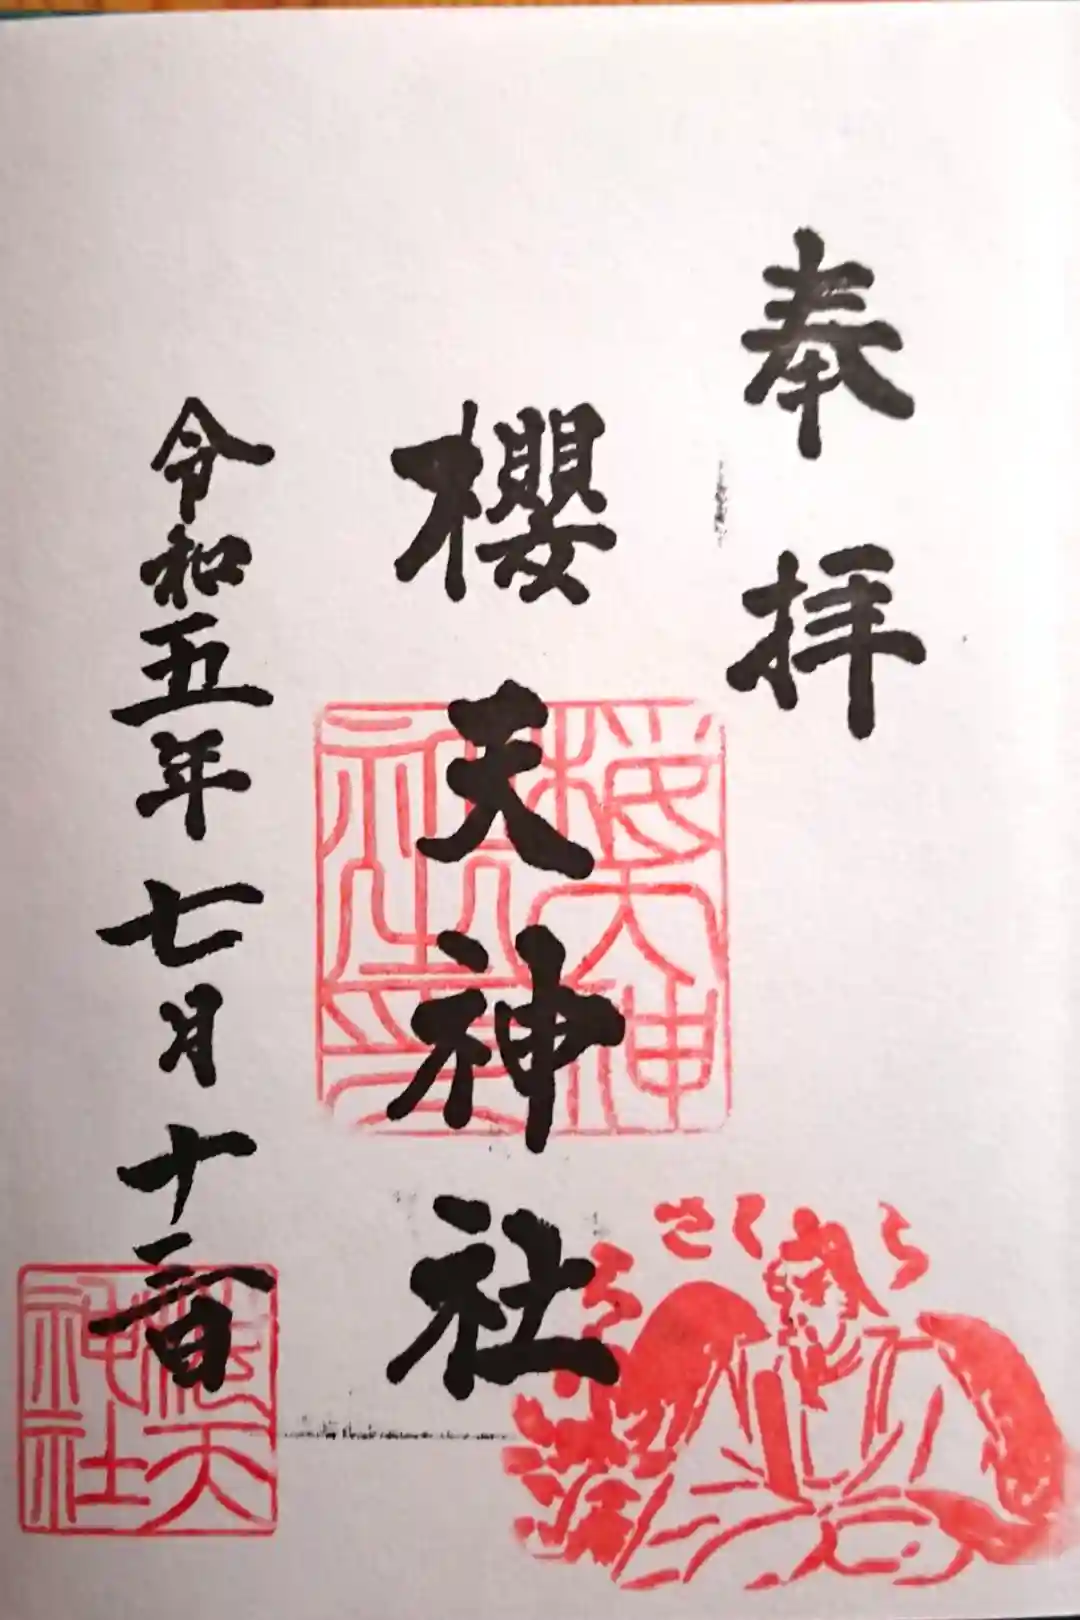 奉拝
櫻天神社
令和五年七月十二日
櫻天神社印
さくら
櫻天神社